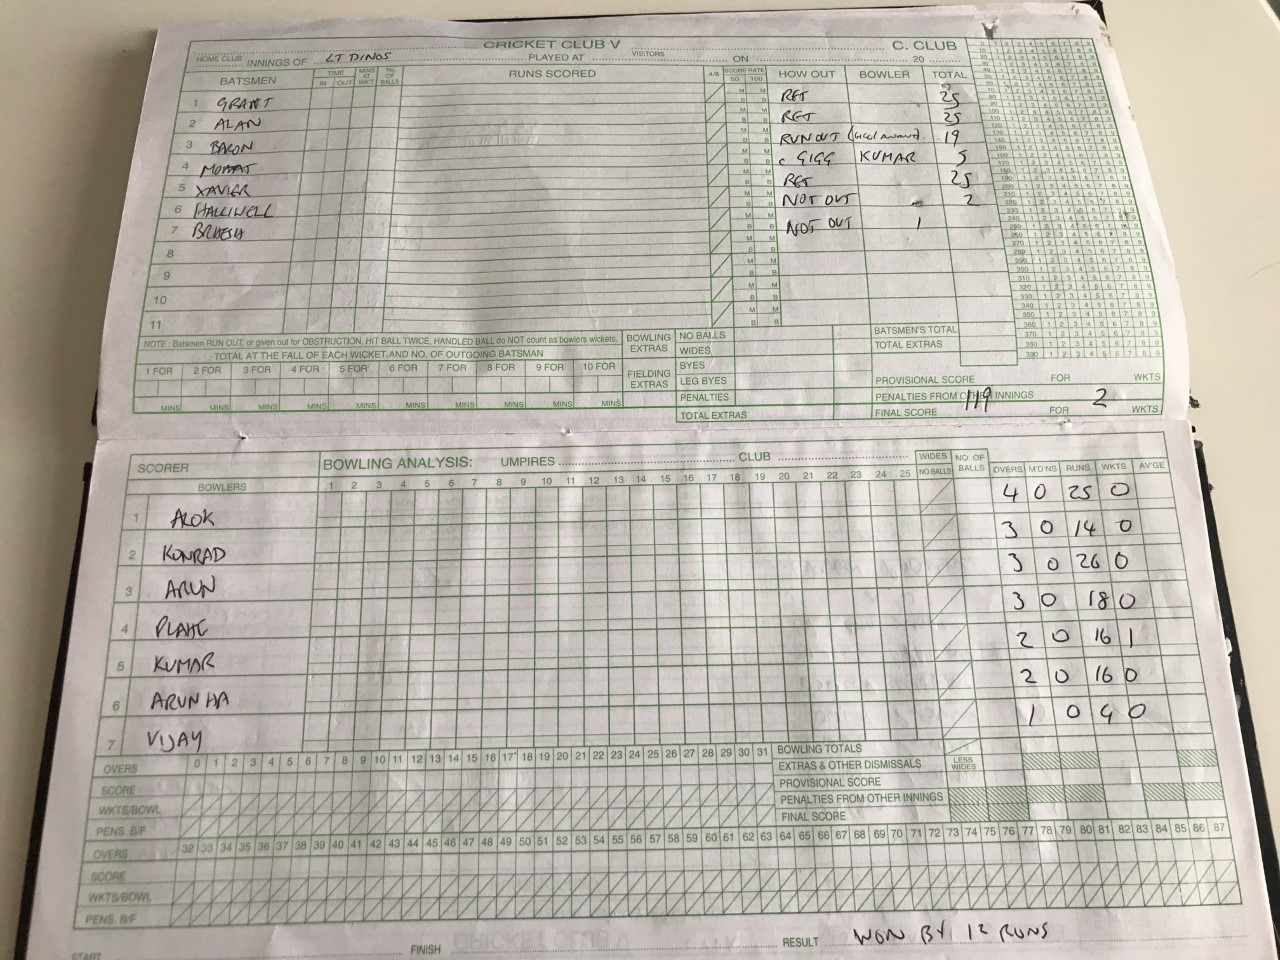 CRICKET CLUB V C. CLUB
HOME CLUB INNINGS OF LT DINOS PLAYED AT VISITORS ON 20
BATSMEN TIME IN OUT MINS AT WKT NO. OF BALLS RUNS SCORED 4/6 SCORE RATE 50 100 HOW OUT BOWLER TOTAL
1 GRANT RET 25
2 ALAN RET 25
3 BACON RUN OUT 19
4 MOFFAT c GIGG KUMAR 5
5 XAVIER RET 25
6 HALLIWELL NOT OUT 2
7 NOT OUT 1
8
9
10
11
NOTE : Batsmen RUN OUT, or given out for OBSTRUCTION, HIT BALL TWICE, HANDLED BALL do NOT count as bowlers wickets.
TOTAL AT THE FALL OF EACH WICKET, AND NO. OF OUTGOING BATSMAN
1 FOR 2 FOR 3 FOR 4 FOR 5 FOR 6 FOR 7 FOR 8 FOR 9 FOR 10 FOR
MINS MINS MINS MINS MINS MINS MINS MINS MINS MINS
BOWLING EXTRAS NO BALLS
WIDES
FIELDING EXTRAS BYES
LEG BYES
PENALTIES
TOTAL EXTRAS
BATSMEN'S TOTAL
TOTAL EXTRAS
PROVISIONAL SCORE FOR WKTS
PENALTIES FROM OTHER INNINGS
FINAL SCORE 119 FOR 2 WKTS
SCORER BOWLING ANALYSIS: UMPIRES CLUB WIDES NO BALLS NO. OF BALLS OVERS M'DNS RUNS WKTS AV'GE
BOWLERS 1 2 3 4 5 6 7 8 9 10 11 12 13 14 15 16 17 18 19 20 21 22 23 24 25
1 ALOK 4 0 25 0
2 KONRAD 3 0 14 0
3 ARUN 3 0 26 0
4 3 0 18 0
5 KUMAR 2 0 16 1
6 ARUN HA 2 0 16 0
7 VIJAY 1 0 4 0
OVERS 0 1 2 3 4 5 6 7 8 9 10 11 12 13 14 15 16 17 18 19 20 21 22 23 24 25 26 27 28 29 30 31
SCORE
WKTS/BOWL
PENS. B/F
BOWLING TOTALS
EXTRAS & OTHER DISMISSALS LESS WIDES
PROVISIONAL SCORE
PENALTIES FROM OTHER INNINGS
FINAL SCORE
OVERS 32 33 34 35 36 37 38 39 40 41 42 43 44 45 46 47 48 49 50 51 52 53 54 55 56 57 58 59 60 61 62 63 64 65 66 67 68 69 70 71 72 73 74 75 76 77 78 79 80 81 82 83 84 85 86 87
SCORE
WKTS/BOWL
PENS. B/F
START FINISH RESULT WON BY 12 RUNS